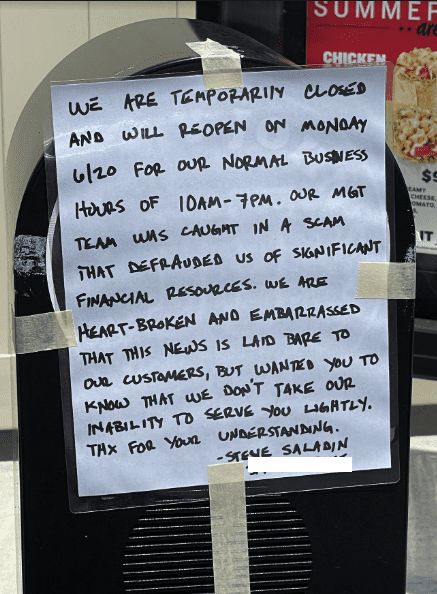 SUMMER
CHICKEN
WE ARE TEMPORARILY CLOSED
AND WILL REOPEN ON MONDAY
6/20 FOR OUR NORMAL BUSINESS
HOURS OF 10AM-7PM. OUR MGT
TEAM WAS CAUGHT IN A SCAM
THAT DEFRAUDED US OF SIGNIFICANT
FINANCIAL RESOURCES. WE ARE
HEART-BROKEN AND EMBARRASSED
THAT THIS NEWS IS LAID BARE TO
OUR CUSTOMERS, BUT WANTED YOU TO
KNOW THAT WE DON'T TAKE OUR
INABILITY TO SERVE YOU LIGHTLY.
THX FOR YOUR UNDERSTANDING.
-STEVE SALADIN